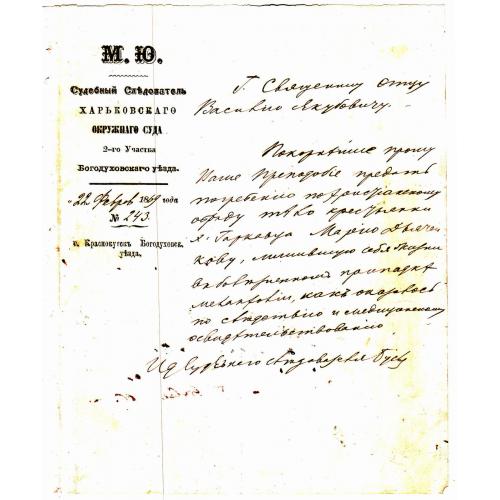 М. Ю.
Судебный Слѣдователь
ХАРЬКОВСКАГО
ОКРУЖНАГО СУДА
2-го Участка
Богодуховскаго уѣзда.
22 Февр 1869 года
№ 243.
Краснокутск Богодуховск.
уѣзда.
Г. Священнику Отцу
Василию Якубовичу.
Покорнѣйше прошу
Ваше Преподобіе предать
погребению по христіанскому
обряду тѣло крестьянки
Марію
кову, лишившую себя жизни
припадкѣ
меланхоліи, какъ оказалось
по слѣдствію и медицинскому
освидѣтельствованію
И д Судебнаго слѣдователя